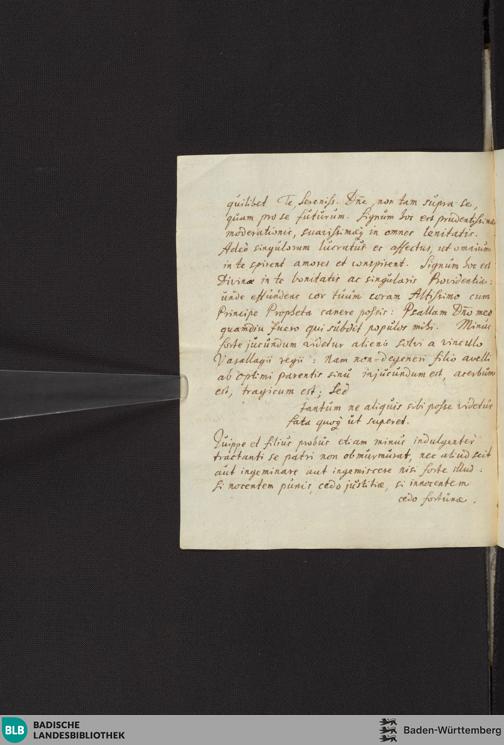 quilibet Te, Sereniss. Dne, non tam supra se,
quam pro se futurum. Signum hoc est prudentissimæ
moderationis, suavissimæq in omnes lenitatis.
Adeò singulorum lucratus es affectus, ut omnium
in te spirent amores et conspirent. Signum hoc est
Divinæ in te bonitatis ac singularis Providentiæ:
unde effundens cor tuum coram Altissimo cum
Principe Propheta canere possis: Psallam Dno meo
quamdiu fuero qui subdit populos mihi. Minus
forte jucundum videtur alienis solvi a vinculo
Vasallagii regii: Nam non-degeneri filio avelli
ab optimi parentis sinu injucundum est, acerbum
est, tragicum est; Sed
tantum ne aliquis sibi posse videtur
fata quoq ut superet.
Quippe et filius probus etiam minus indulgenter
tractanti se patri non obmurmurat, nec aliud scit
aut ingeminare aut ingemiscere nisi forte illud:
si nocentem punis, cedo justitiæ, si innocentem
cedo fortunæ.
BLB
BADISCHE
LANDESBIBLIOTHEK
Baden-Württemberg